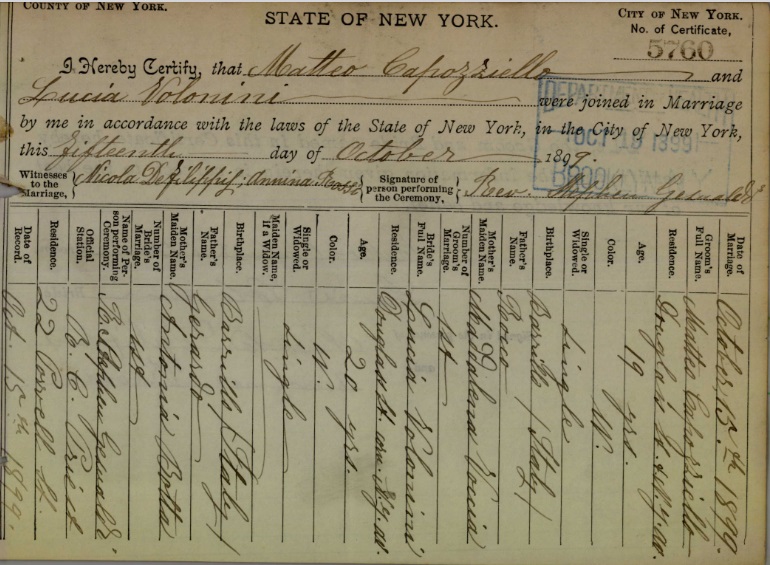 COUNTY OF NEW YORK.
STATE OF NEW YORK.
CITY OF NEW YORK.
No. of Certificate,
5760
I Hereby Certify, that Matteo Capozziello and
Lucia Volonini were joined in Marriage
by me in accordance with the laws of the State of New York, in the City of New York,
this fifteenth day of October 1899.
Witnesses to the Marriage, Nicola Defilippis, Annina Signature of person performing the Ceremony, Rev. Stephen
OCT 19 1899
BROOKLYN
Date of Marriage. October 15th 1899.
Groom's Full Name. Matteo Capozziello
Residence. Douglass St. & N.Y. av.
Age. 19 yrs.
Color. W.
Single or Widowed. Single
Birthplace. Italy
Father's Name. Rocco
Mother's Maiden Name. Maddalena
Number of Groom's Marriage. 1st
Bride's Full Name. Lucia Volonini
Residence. Douglass St. N.Y. av.
Age. 20 yrs.
Color. W.
Single or Widowed. Single
Maiden Name, if a Widow.
Birthplace. Italy
Father's Name. Gerardo
Mother's Maiden Name. Antonia Botta
Number of Bride's Marriage. 1st
Name of Person performing Ceremony. Stephen
Official Station. R. C. Priest
Residence. 22 St.
Date of Record. Oct. 15th 1899.